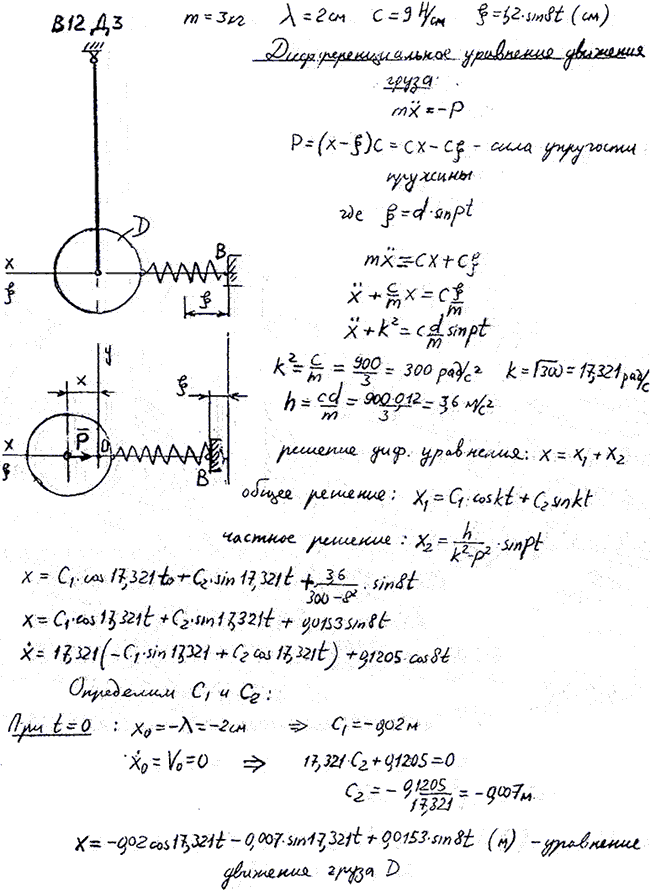 В12 Д3 m = 3кг λ = 2см c = 9 Н/см ξ = 1,2·sin8t (см)
Дифференциальное уравнение движения
груза:
mẍ = -P
P = (x-ξ)c = cx - cξ - сила упругости
пружины
где ξ = d·sinpt
D
B
x
ξ
ξ
mẍ = cx + cξ
ẍ + c/m x = c ξ/m
ẍ + k² = c d/m sinpt
y
x
ξ
P̄
0
x
ξ
B
k² = c/m = 900/3 = 300 рад/с² k = √300 = 17,321 рад/с
h = cd/m = 900·0,012/3 = 3,6 м/с²
решение диф. уравнения: x = x₁ + x₂
общее решение: x₁ = C₁·coskt + C₂sinkt
частное решение: x₂ = h/(k²-p²)·sinpt
x = C₁·cos17,321t + C₂·sin17,321t + 3,6/(300-8²)·sin8t
x = C₁·cos17,321t + C₂·sin17,321t + 0,0153sin8t
ẋ = 17,321(-C₁·sin17,321 + C₂cos17,321t) + 0,1205·cos8t
Определим C₁ и C₂:
При t=0 : x₀ = -λ = -2см ⇒ C₁ = -0,02м
ẋ₀ = V₀ = 0 ⇒ 17,321·C₂ + 0,1205 = 0
C₂ = - 0,1205/17,321 = -0,007м.
x = -0,02cos17,321t - 0,007·sin17,321t + 0,0153·sin8t (м) - уравнение
движения груза D